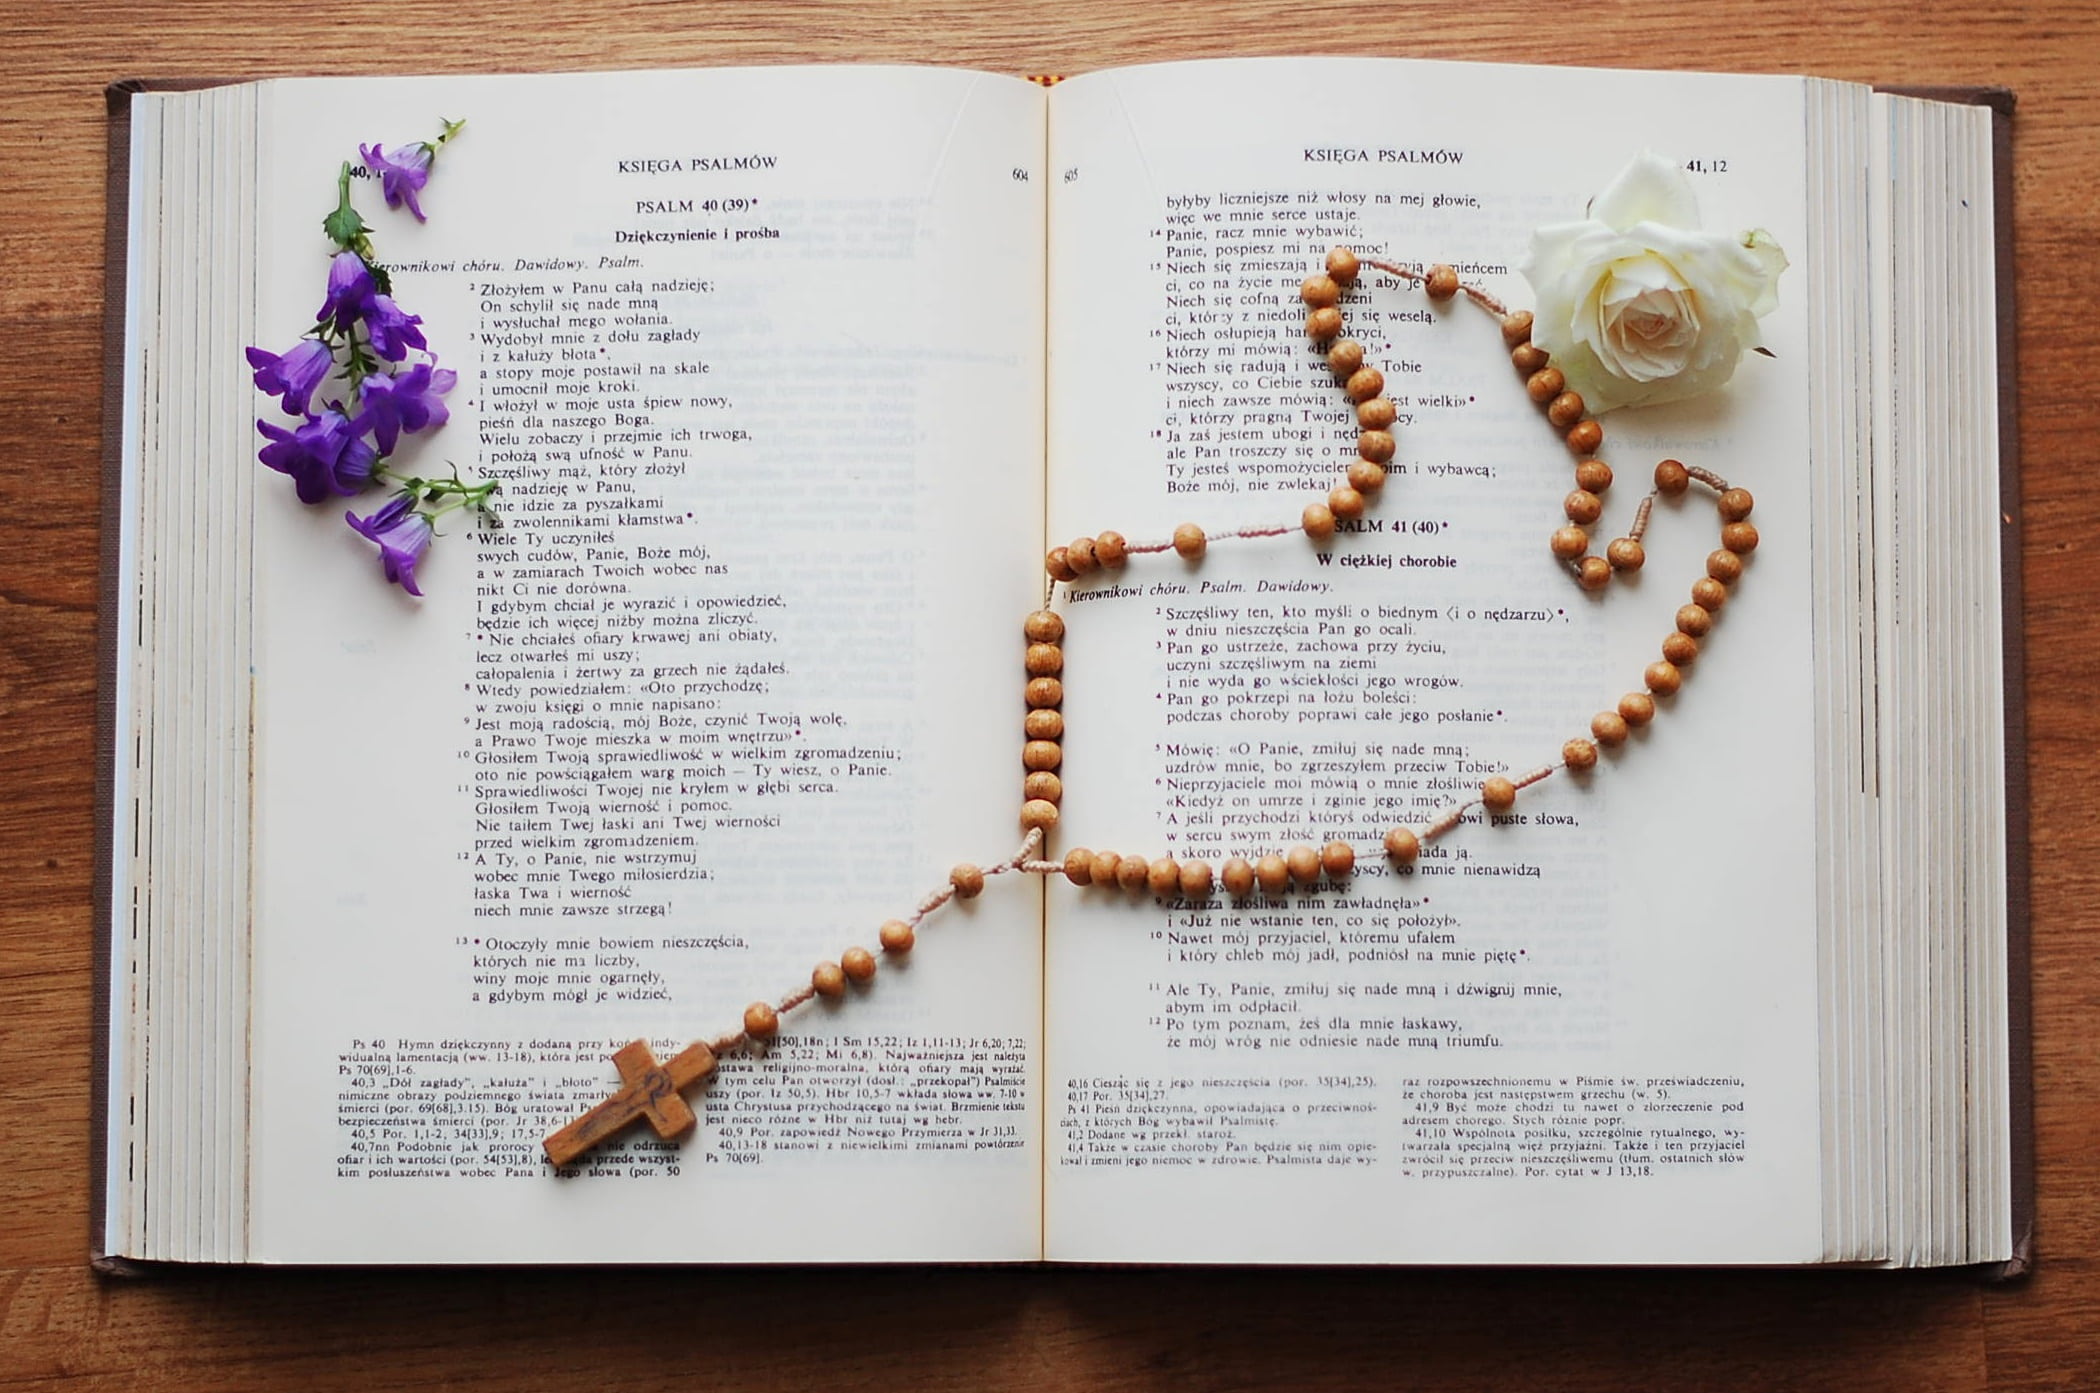 KSIĘGA PSALMÓW
604
PSALM 40 (39)*
Dziękczynienie i prośba
Kierownikowi chóru. Dawidowy. Psalm.
2 Złożyłem w Panu całą nadzieję;
On schylił się nade mną
i wysłuchał mego wołania.
3 Wydobył mnie z dołu zagłady
i z kałuży błota*,
a stopy moje postawił na skale
i umocnił moje kroki.
4 I włożył w moje usta śpiew nowy,
pieśń dla naszego Boga.
Wielu zobaczy i przejmie ich trwoga,
i położą swą ufność w Panu.
5 Szczęśliwy mąż, który złożył
swą nadzieję w Panu,
a nie idzie za pyszałkami
i za zwolennikami kłamstwa*.
6 Wiele Ty uczyniłeś
swych cudów, Panie, Boże mój,
a w zamiarach Twoich wobec nas
nikt Ci nie dorówna.
I gdybym chciał je wyrazić i opowiedzieć,
będzie ich więcej niżby można zliczyć.
7 * Nie chciałeś ofiary krwawej ani obiaty,
lecz otwarłeś mi uszy;
całopalenia i żertwy za grzech nie żądałeś.
8 Wtedy powiedziałem: «Oto przychodzę;
w zwoju księgi o mnie napisano:
9 Jest moją radością, mój Boże, czynić Twoją wolę,
a Prawo Twoje mieszka w moim wnętrzu»*.
10 Głosiłem Twoją sprawiedliwość w wielkim zgromadzeniu;
oto nie powściągałem warg moich — Ty wiesz, o Panie.
11 Sprawiedliwości Twojej nie kryłem w głębi serca.
Głosiłem Twoją wierność i pomoc.
Nie taiłem Twej łaski ani Twej wierności
przed wielkim zgromadzeniem.
12 A Ty, o Panie, nie wstrzymuj
wobec mnie Twego miłosierdzia;
łaska Twa i wierność
niech mnie zawsze strzegą!
13 * Otoczyły mnie bowiem nieszczęścia,
których nie ma liczby,
winy moje mnie ogarnęły,
a gdybym mógł je widzieć,
Ps 40 Hymn dziękczynny z dodaną przy indy-
widualną lamentacją (ww. 13-18), która jest
Ps 70[69],1-6.
40,3 „Dół zagłady", „kałuża" i „błoto" —
nimiczne obrazy podziemnego świata
śmierci (por. 69[68],3.15). Bóg uratował
bezpieczeństwa śmierci (por. Jr 38,6-
40,5 Por. 1,1-2, 34[33],9; 17,5-7
40,7nn Podobnie jak prorocy nie odrzuca
ofiar i ich wartości (por. 54[53],8), przede wszyst-
kim posłuszeństwa wobec Pana i Jego słowa (por. 50
[50],18n; 1 Sm 15,22; Iz 1,11-13; Jr 6,20; 7,22;
6,6; Am 5,22; Mi 6,8). Najważniejsza jest należyta
postawa religijno-moralna, którą ofiary mają wyrażać.
W tym celu Pan otworzył (dosł.: „przekopał") Psalmiście
uszy (por. Iz 50,5). Hbr 10,5-7 wkłada słowa ww. 7-10 w
usta Chrystusa przychodzącego na świat. Brzmienie tekstu
jest nieco różne w Hbr niż tutaj wg hebr.
40,9 Por. zapowiedź Nowego Przymierza w Jr 31,33.
40,13-18 stanowi z niewielkimi zmianami powtórzenie
Ps 70[69].
605
KSIĘGA PSALMÓW
41, 12
byłyby liczniejsze niż włosy na mej głowie,
więc we mnie serce ustaje.
14 Panie, racz mnie wybawić;
Panie, pospiesz mi na pomoc!
15 Niech się zmieszają i rumieńcem
ci, co na życie aby je
Niech się cofną
ci, którzy z niedoli mej się weselą.
16 Niech osłupieją okryci,
którzy mi mówią:
17 Niech się radują i w Tobie
wszyscy, co Ciebie
i niech zawsze mówią: jest wielki»*
ci, którzy pragną Twojej pomocy.
18 Ja zaś jestem ubogi i
ale Pan troszczy się o
Ty jesteś wspomożycielem moim i wybawcą;
Boże mój, nie zwlekaj!
PSALM 41 (40)*
W ciężkiej chorobie
1 Kierownikowi chóru. Psalm. Dawidowy.
2 Szczęśliwy ten, kto myśli o biednym ⟨i o nędzarzu⟩*,
w dniu nieszczęścia Pan go ocali.
3 Pan go ustrzeże, zachowa przy życiu,
uczyni szczęśliwym na ziemi
i nie wyda go wściekłości jego wrogów.
4 Pan go pokrzepi na łożu boleści:
podczas choroby poprawi całe jego posłanie*.
5 Mówię: «O Panie, zmiłuj się nade mną;
uzdrów mnie, bo zgrzeszyłem przeciw Tobie!»
6 Nieprzyjaciele moi mówią o mnie złośliwie
«Kiedyż on umrze i zginie jego imię?»
7 A jeśli przychodzi któryś odwiedzić mówi puste słowa,
w sercu swym złość gromadzi
a skoro wyjdzie
co mnie nienawidzą
zgubę:
9 «Zaraza złośliwa nim zawładnęła»*
i «Już nie wstanie ten, co się położył».
10 Nawet mój przyjaciel, któremu ufałem
i który chleb mój jadł, podniósł na mnie piętę*.
11 Ale Ty, Panie, zmiłuj się nade mną i dźwignij mnie,
abym im odpłacił.
12 Po tym poznam, żeś dla mnie łaskawy,
że mój wróg nie odniesie nade mną triumfu.
40,16 Ciesząc się z jego nieszczęścia (por. 35[34],25).
40,17 Por. 35[34],27.
Ps 41 Pieśń dziękczynna, opowiadająca o przeciwnoś-
ciach, z których Bóg wybawił Psalmistę.
41,2 Dodane wg przekł. staroż.
41,4 Także w czasie choroby Pan będzie się nim opie-
kował i zmieni jego niemoc w zdrowie. Psalmista daje wy-
raz rozpowszechnionemu w Piśmie św. przeświadczeniu,
że choroba jest następstwem grzechu (w. 5).
41,9 Być może chodzi tu nawet o złorzeczenie pod
adresem chorego. Stych różnie popr.
41,10 Wspólnota posiłku, szczególnie rytualnego, wy-
twarzała specjalną więź przyjaźni. Także i ten przyjaciel
zwrócił się przeciw nieszczęśliwemu (tłum. ostatnich słów
w. przypuszczalne). Por. cytat w J 13,18.